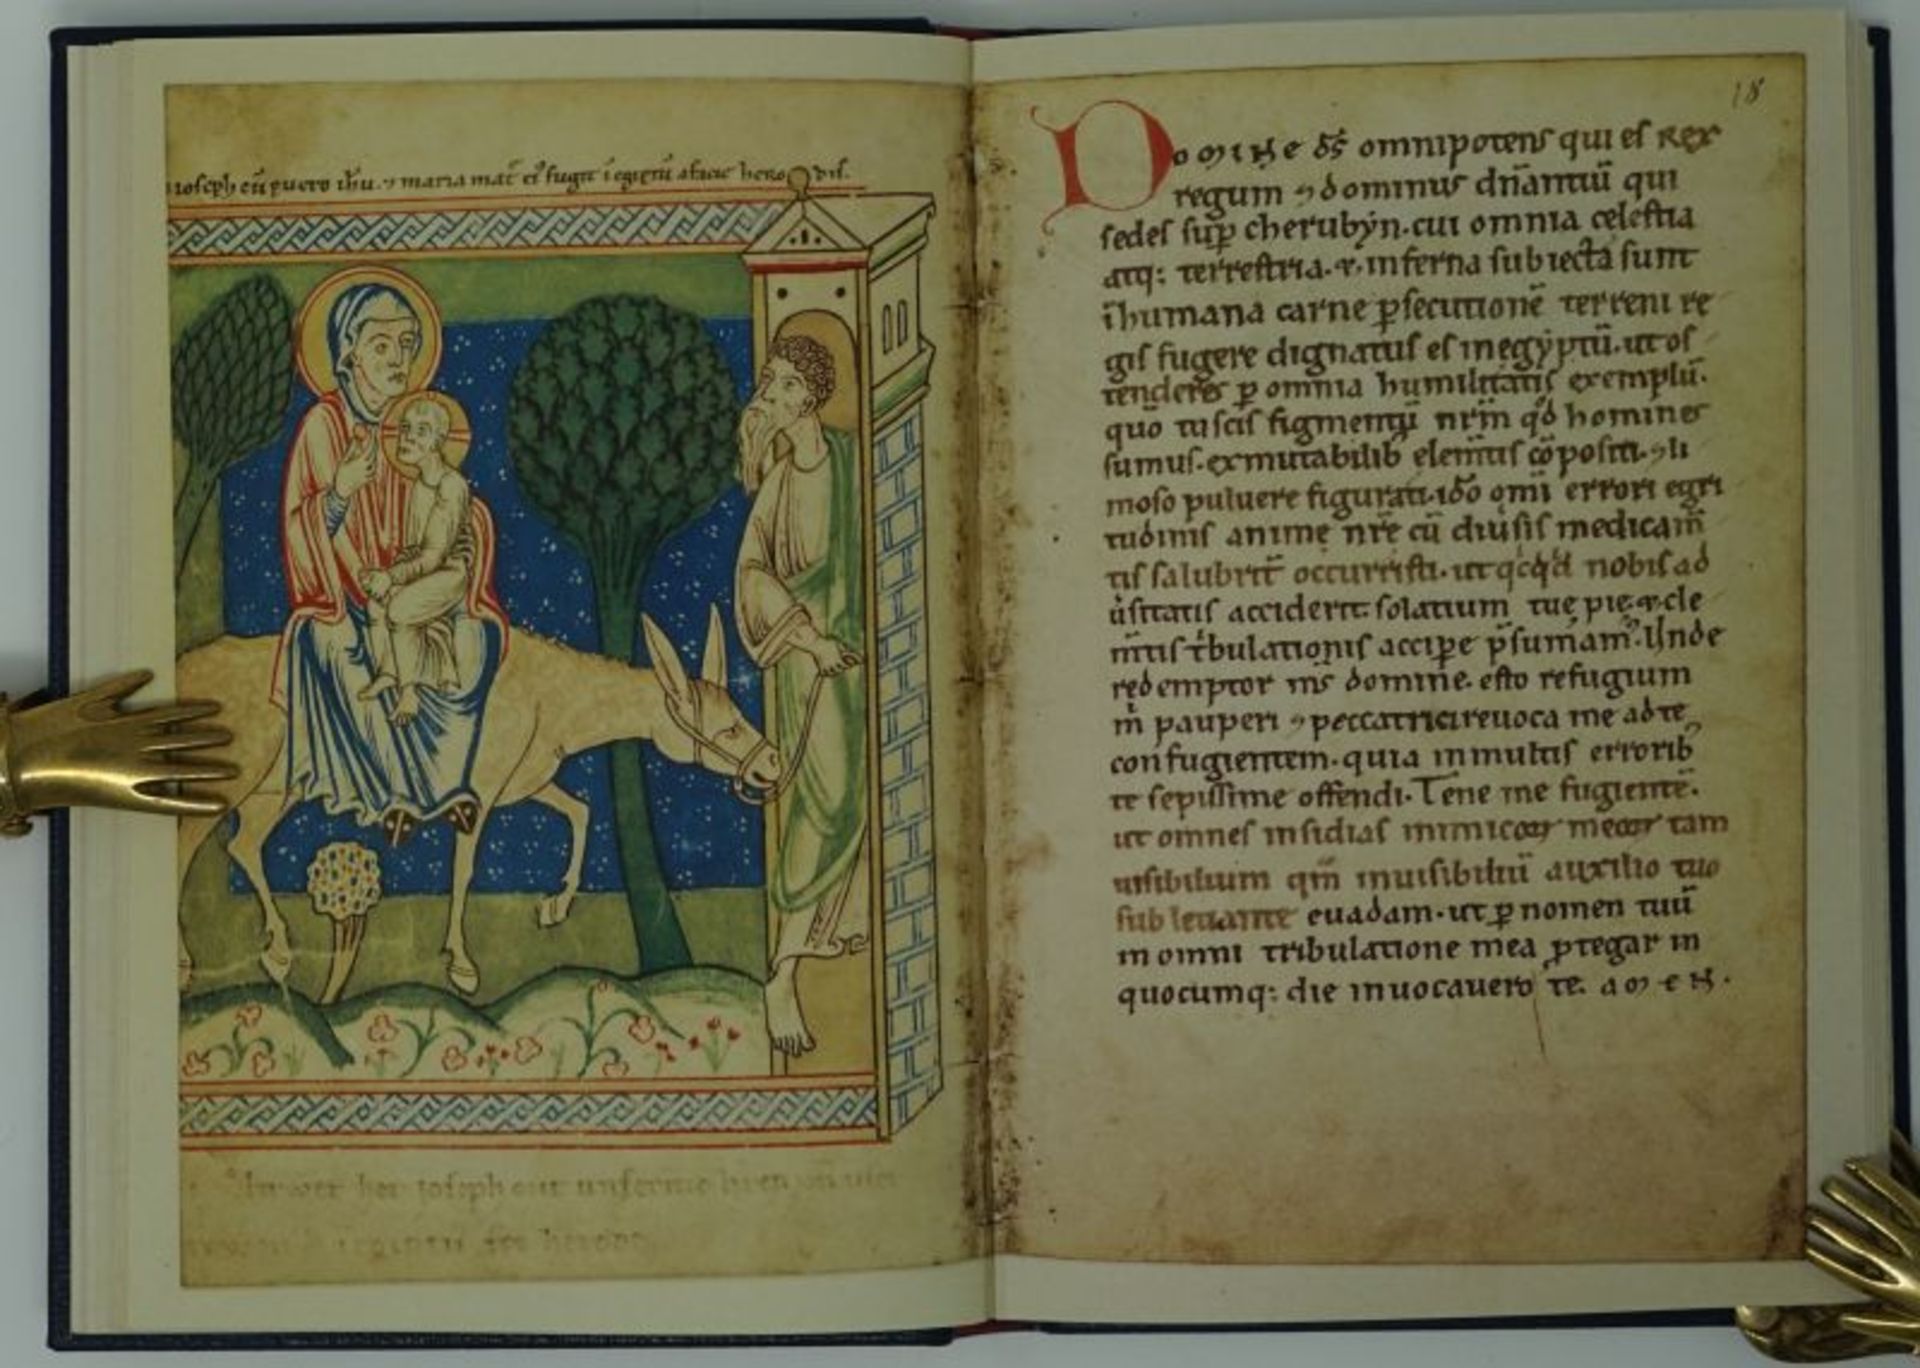 ioseph cū puero ih̄u. ⁊ maria mat̄ ei᷒ fugit ī egiptū afacie herodis.
18
Domine d̄s omnipotens qui es Rex
regum ⁊ dominus dn̄antiū qui
sedes suꝑ cherubyn. cui omnia celestia
atq: terrestria. ⁊. inferna subiecta sunt
ī humana carne ꝑsecutionē terreni re
gis fugere dignatus es inegyptū. ut os
tenderes ꝑ omnia humilitatis exemplū.
quō tu scis figmentū nr̄m qd̄ homines
sumus. exmutabilib elem̄tis cōpositi. ⁊ li
moso puluere figurati. idō om̄i errori egri
tudinis anime nr̄e cū diūsis medicam̄
tis salubrit̄ occurristi. ut qcqd nobis ad
ūsitatis acciderit. solatium tue pie. ⁊. cle
m̄tis tbulationis accipe p̄sumam᷒. Unde
redemptor m̄s domine. esto refugium
m̄ pauperi ⁊ peccatrici reuoca me adte
confugientem. quia inmultis errorib
te sepissime offendi. Tene me fugientē.
ut omnes insidias inimicoꝝ meoꝝ tam
uisibilium qm̄ inuisibiliū auxilio tuo
subleuante euadam. ut ꝑ nomen tuū
in omni tribulatione mea ꝓtegar in
quocumq: die inuocauero te. amen.